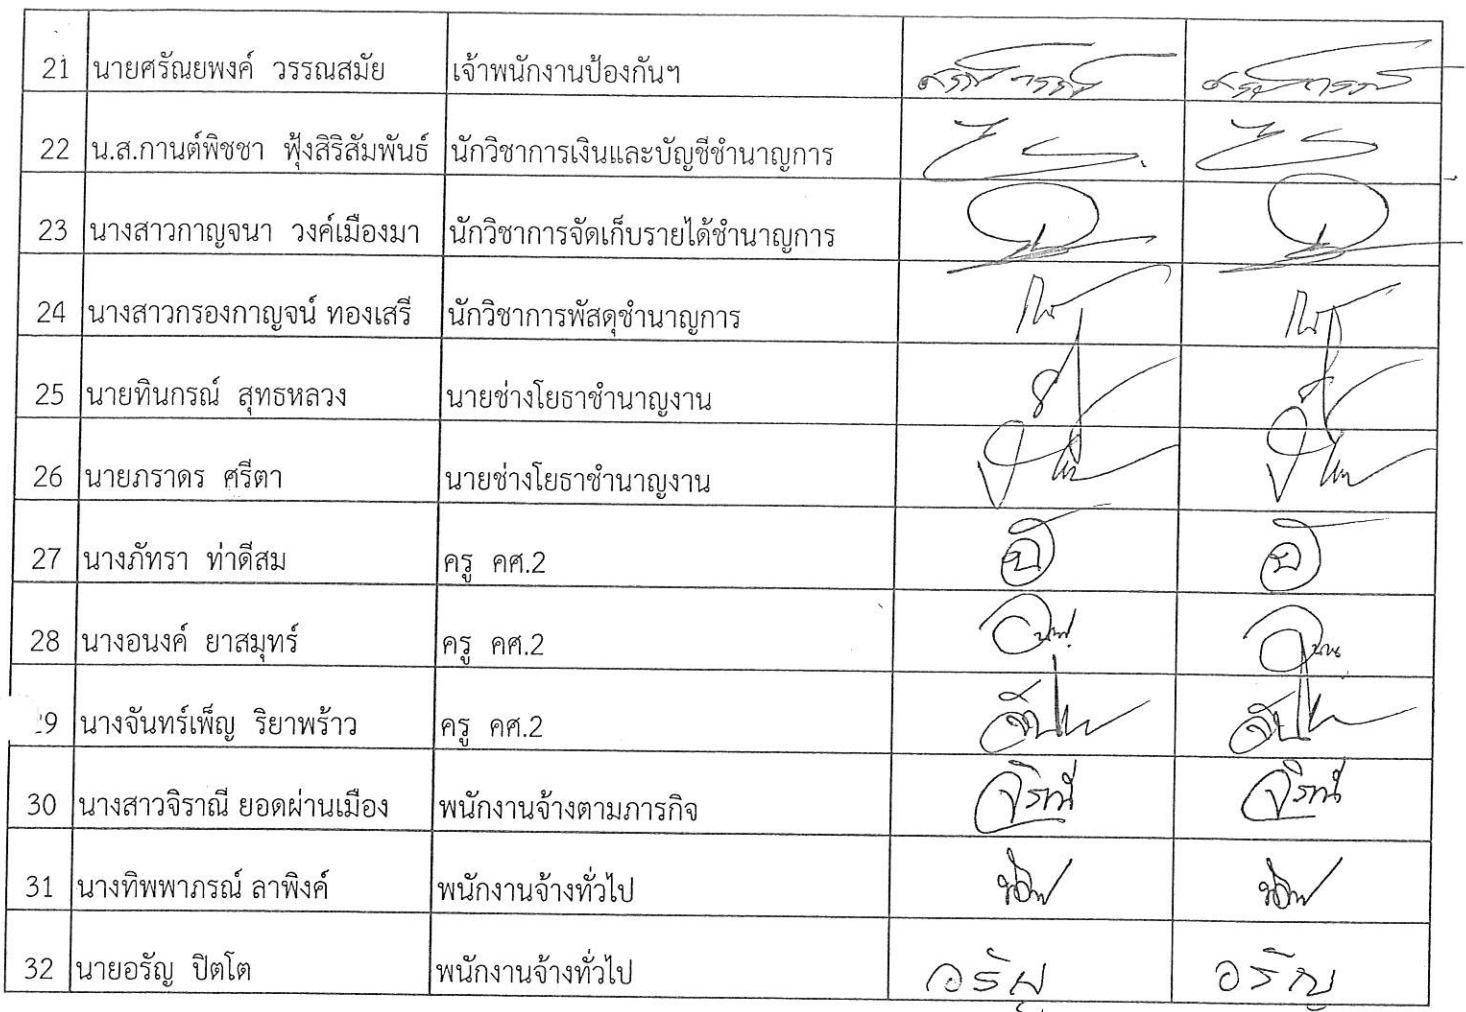 21 นายศรัณยพงค์ วรรณสมัย เจ้าพนักงานป้องกันฯ
22 น.ส.กานต์พิชชา ฟุ้งสิริสัมพันธ์ นักวิชาการเงินและบัญชีชำนาญการ
23 นางสาวกาญจนา วงค์เมืองมา นักวิชาการจัดเก็บรายได้ชำนาญการ
24 นางสาวกรองกาญจน์ ทองเสรี นักวิชาการพัสดุชำนาญการ
25 นายทินกรณ์ สุทธหลวง นายช่างโยธาชำนาญงาน
26 นายภราดร ศรีตา นายช่างโยธาชำนาญงาน
27 นางภัทรา ท่าดีสม ครู คศ.2
28 นางอนงค์ ยาสมุทร์ ครู คศ.2
29 นางจันทร์เพ็ญ ริยาพร้าว ครู คศ.2
30 นางสาวจิราณี ยอดผ่านเมือง พนักงานจ้างตามภารกิจ
31 นางทิพพาภรณ์ ลาพิงค์ พนักงานจ้างทั่วไป
32 นายอรัญ ปิตโต พนักงานจ้างทั่วไป อรัญ อรัญ